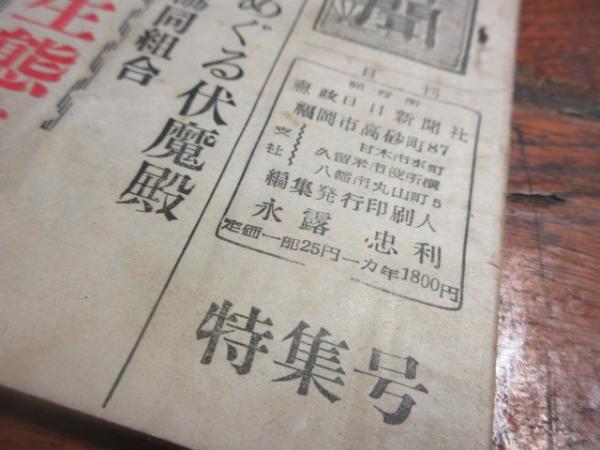 日刊
発行所
憲政日日新聞社
福岡市高砂町87
支社
甘木市水町
久留米市役所横
八幡市丸山町5
編集発行印刷人
永露忠利
定価一部25円一カ年1800円
特集号
めぐる伏魔殿
同組合
生態